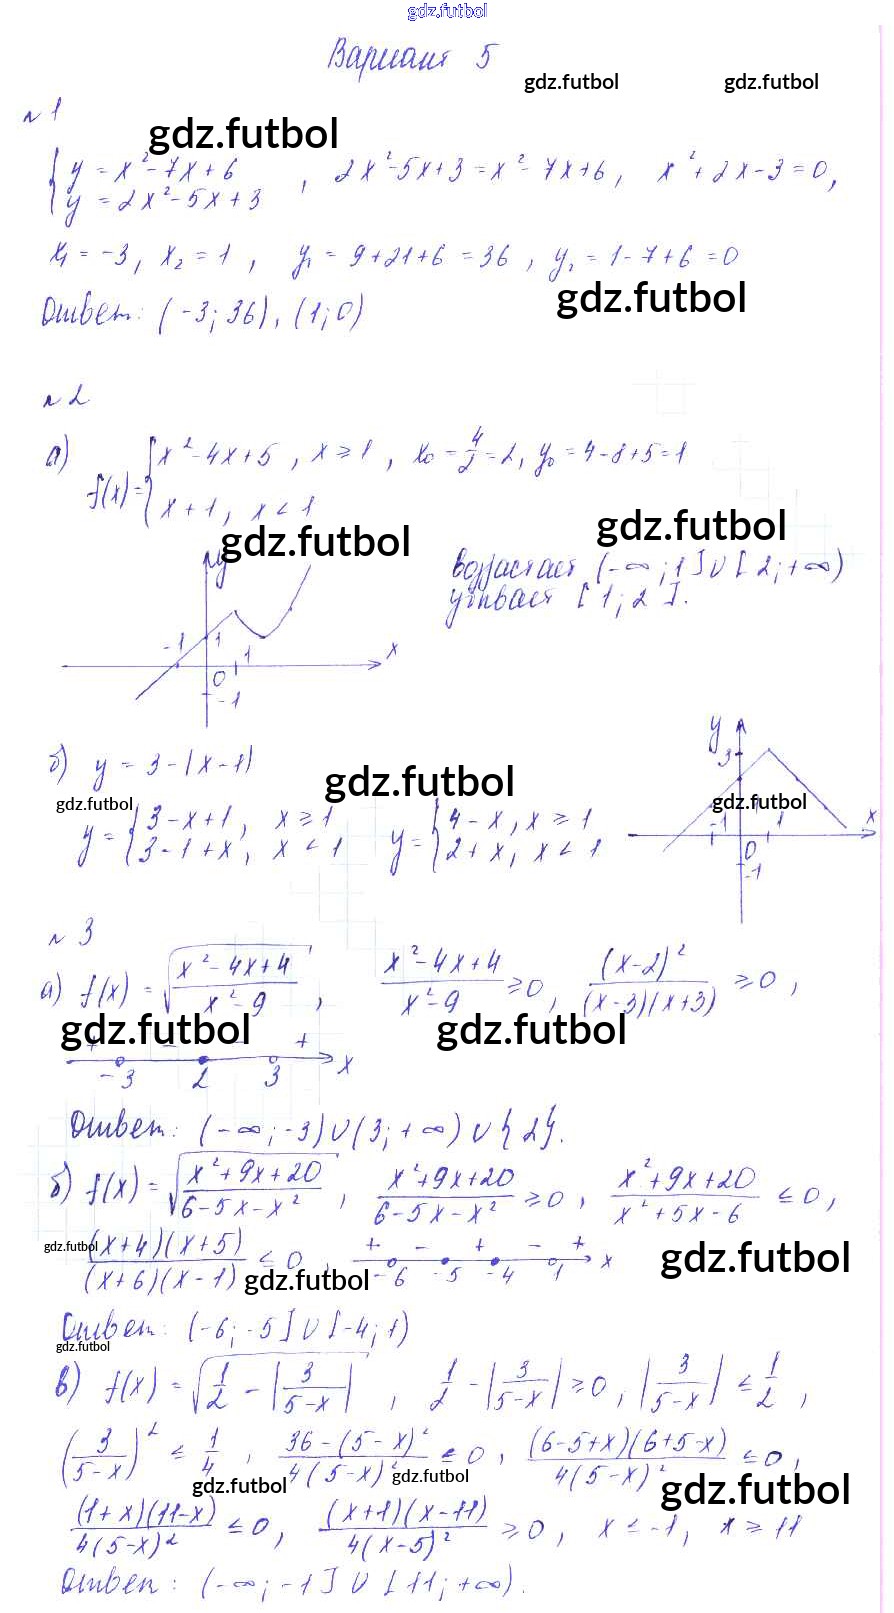 gdz.futbol
Вариант 5
gdz.futbol gdz.futbol
№1
gdz.futbol
{ y = x² - 7x + 6
y = 2x² - 5x + 3 , 2x² - 5x + 3 = x² - 7x + 6, x² + 2x - 3 = 0,
x₁ = -3, x₂ = 1, y₁ = 9 + 21 + 6 = 36, y₂ = 1 - 7 + 6 = 0
gdz.futbol
Ответ: (-3; 36), (1; 0)
№2
а) f(x) = { x² - 4x + 5, x ≥ 1, x₀ = 4/2 = 2, y₀ = 4 - 8 + 5 = 1
x + 1, x < 1
gdz.futbol gdz.futbol
y
возрастает (-∞; 1] ∪ [2; +∞)
убывает [1; 2].
-1 1 0 1 x
-1
б) y = 3 - |x - 1|
gdz.futbol
gdz.futbol
y = { 3 - x + 1, x ≥ 1
3 - 1 + x, x < 1
y = { 4 - x, x ≥ 1
2 + x, x < 1
y 3
gdz.futbol
-1 0 1 x
-1
№3
а) f(x) = √((x² - 4x + 4)/(x² - 9)), (x² - 4x + 4)/(x² - 9) ≥ 0, (x - 2)²/((x - 3)(x + 3)) ≥ 0,
gdz.futbol gdz.futbol
+ - - +
-3 2 3 x
Ответ: (-∞; -3) ∪ (3; +∞) ∪ {2}.
б) f(x) = √((x² + 9x + 20)/(6 - 5x - x²)), (x² + 9x + 20)/(6 - 5x - x²) ≥ 0, (x² + 9x + 20)/(x² + 5x - 6) ≤ 0,
gdz.futbol
((x + 4)(x + 5))/((x + 6)(x - 1)) ≤ 0,
+ - + - +
-6 -5 -4 1 x
gdz.futbol gdz.futbol
Ответ: (-6; -5] ∪ [-4; 1)
gdz.futbol
в) f(x) = √(1/2 - |3/(5 - x)|), 1/2 - |3/(5 - x)| ≥ 0, |3/(5 - x)| ≤ 1/2,
(3/(5 - x))² ≤ 1/4, (36 - (5 - x)²)/(4(5 - x)²) ≤ 0, ((6 - 5 + x)(6 + 5 - x))/(4(5 - x)²) ≤ 0,
gdz.futbol gdz.futbol gdz.futbol
((1 + x)(11 - x))/(4(5 - x)²) ≤ 0, ((x + 1)(x - 11))/(4(x - 5)²) ≥ 0, x ≤ -1, x ≥ 11
Ответ: (-∞; -1] ∪ [11; +∞).